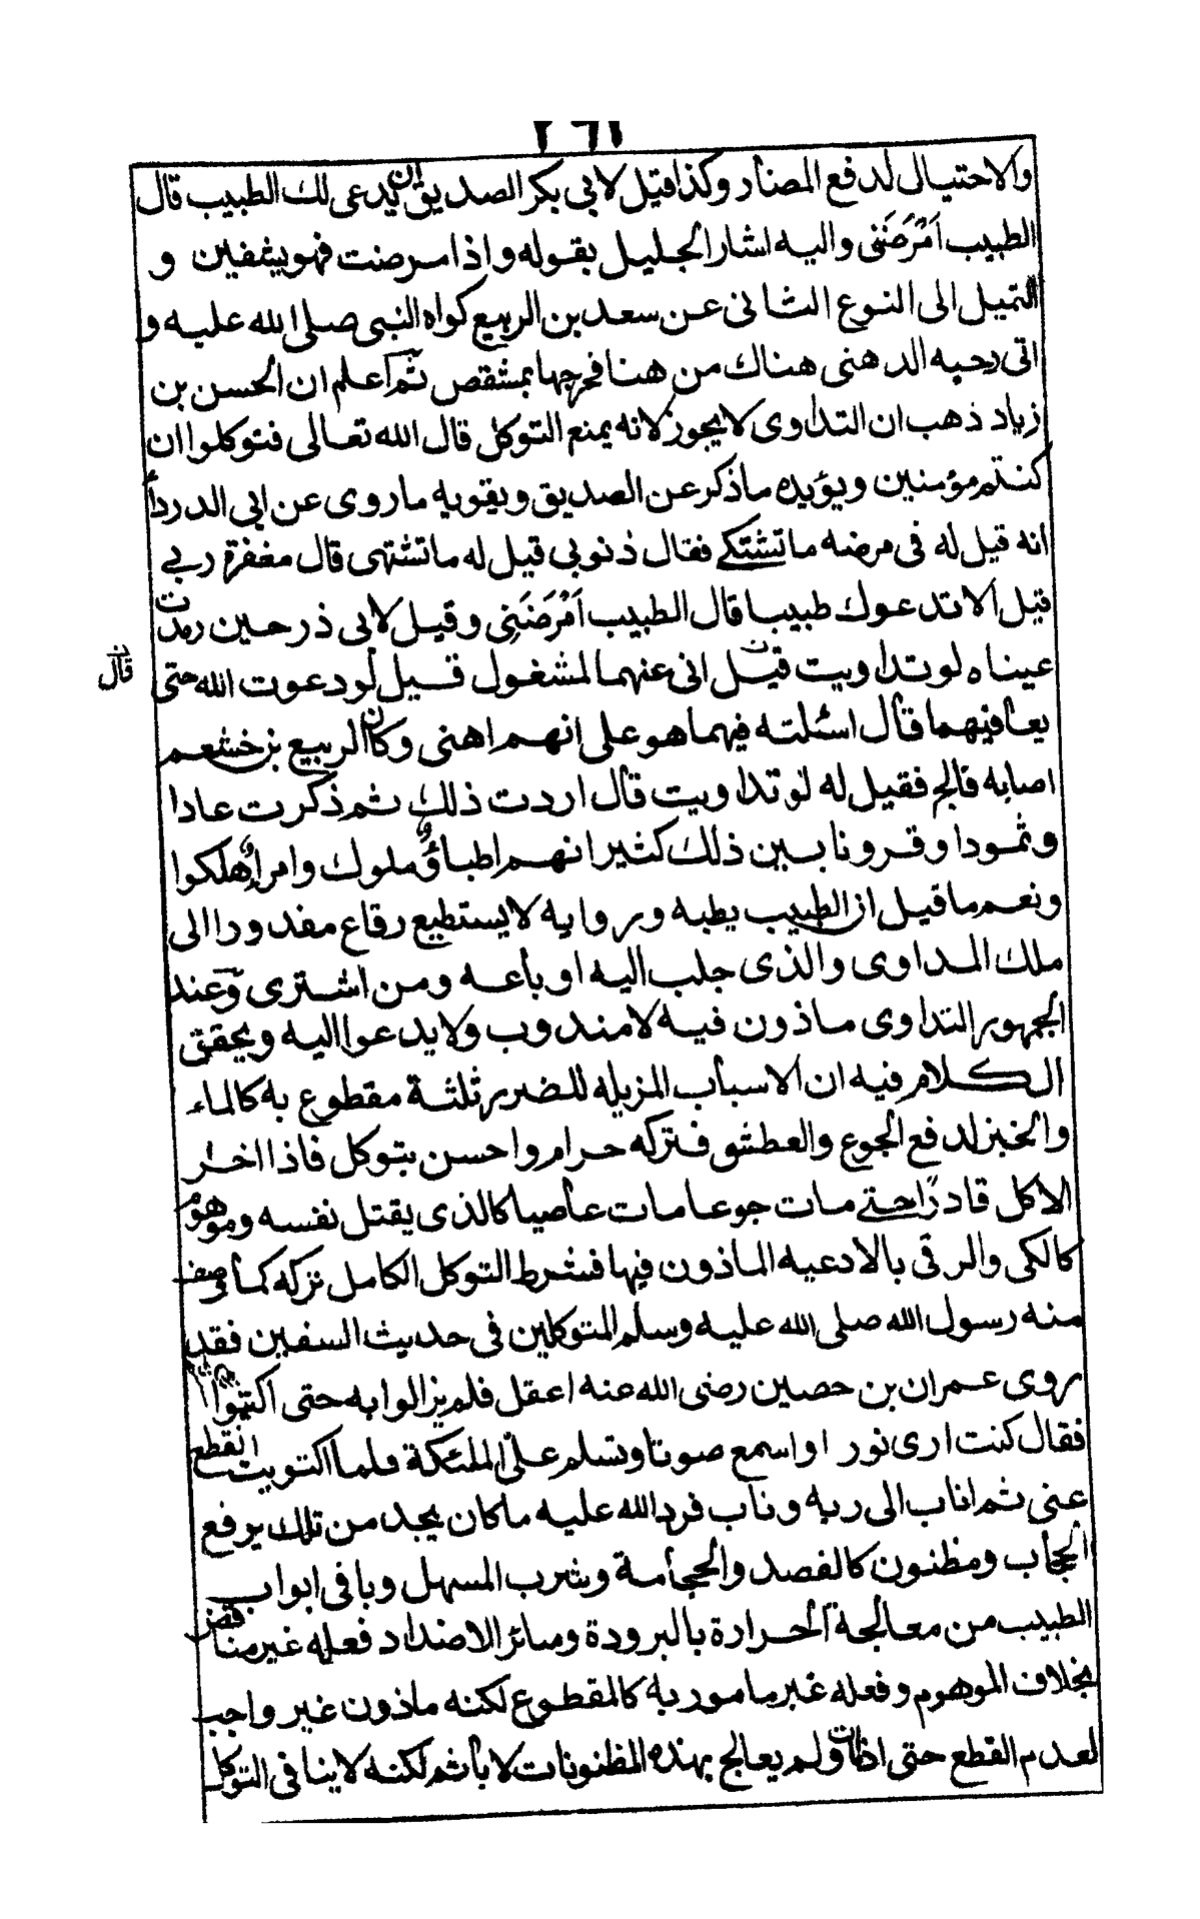 والاحتيال لدفع المضار وكذا قيل لابى بكر الصديق ان يدعى لك الطبيب قال
الطبيب اَمْرَضَنى واليه اشار الجليل بقوله واذا مرضت فهو يشفين و
التميل الى النوع الثانى عن سعد بن الربيع كواه النبى صلى الله عليه و
اتى يحيه الدهنى هناك من هنا فخرجها بمشقص ثم اعلم ان الحسن بن
زياد ذهب ان التداوى لا يجوز لانه يمنع التوكل قال الله تعالى فتوكلوا ان
كنتم مؤمنين ويؤيده ما ذكر عن الصديق ويقويه ما روى عن ابى الدرداء
انه قيل له فى مرضه ما تشتكے فقال ذنوبى قيل له ما تشتهى قال مغفرة ربے
قيل الا تدعوك طبيبا قال الطبيب اَمْرَضَنِى وقيل لابى ذر حين رمدت
عيناه لو تداويت قيل انى عنهما لمشغول قيل لو دعوت الله حتى
قال
يعافيهما قال اسئلته فيهما هو على انهم اهنى وكان الربيع بن خشعم
اصابه فالج فقيل له لو تداويت قال اردت ذلك ثم ذكرت عادا
وثمودا وقرونا بين ذلك كثيرا انهم اطباؤ ملوك وامراء هلكوا
ونعم ما قيل ان الطبيب يطبه وبروايه لا يستطيع رقاع مفدورا الى
ملك المداوى والذى جلب اليه او باعه ومن اشترى وعند
الجمهور التداوى ماذون فيه لا مندوب ولا يدعوا اليه ويحقق
الكلام فيه ان الاسباب المزيله للضرر ثلثة مقطوع به كالماء
والخبز لدفع الجوع والعطش فتركه حرام واحسن بتوكل فاذا اخر
الاكل قادرا حتے مات جوعا مات عاصيا كالذى يقتل نفسه وموهوم
كالكى والرقى بالادعيه الماذون فيها فشرط التوكل الكامل تركه كما فى صف
منه رسول الله صلى الله عليه وسلم المتوكلين فى حديث السفين فقد
روى عمران بن حصين رضى الله عنه اعقل فلم يزالوا به حتى اكتوى
فقال كنت ارى نورا واسمع صوتا وتسلم على الملئكة فلما اكتويت انقطع
عنى ثم اناب الى ربه وناب فرد الله عليه ما كان يجد من تلك يرفع
الحجاب ومظنون كالفصد والحجامة وشرب المسهل وباقى ابواب
الطبيب من معالجة الحرارة بالبرودة وسائر الاضداد فعله غير مناقض
بخلاف الموهوم وفعله غير مامور به كالمقطوع لكنه ماذون غير واجب
لعدم القطع حتى اذا مات ولم يعالج بهذه المظنونات لا يأثم لكنه لا ينافى التوكل